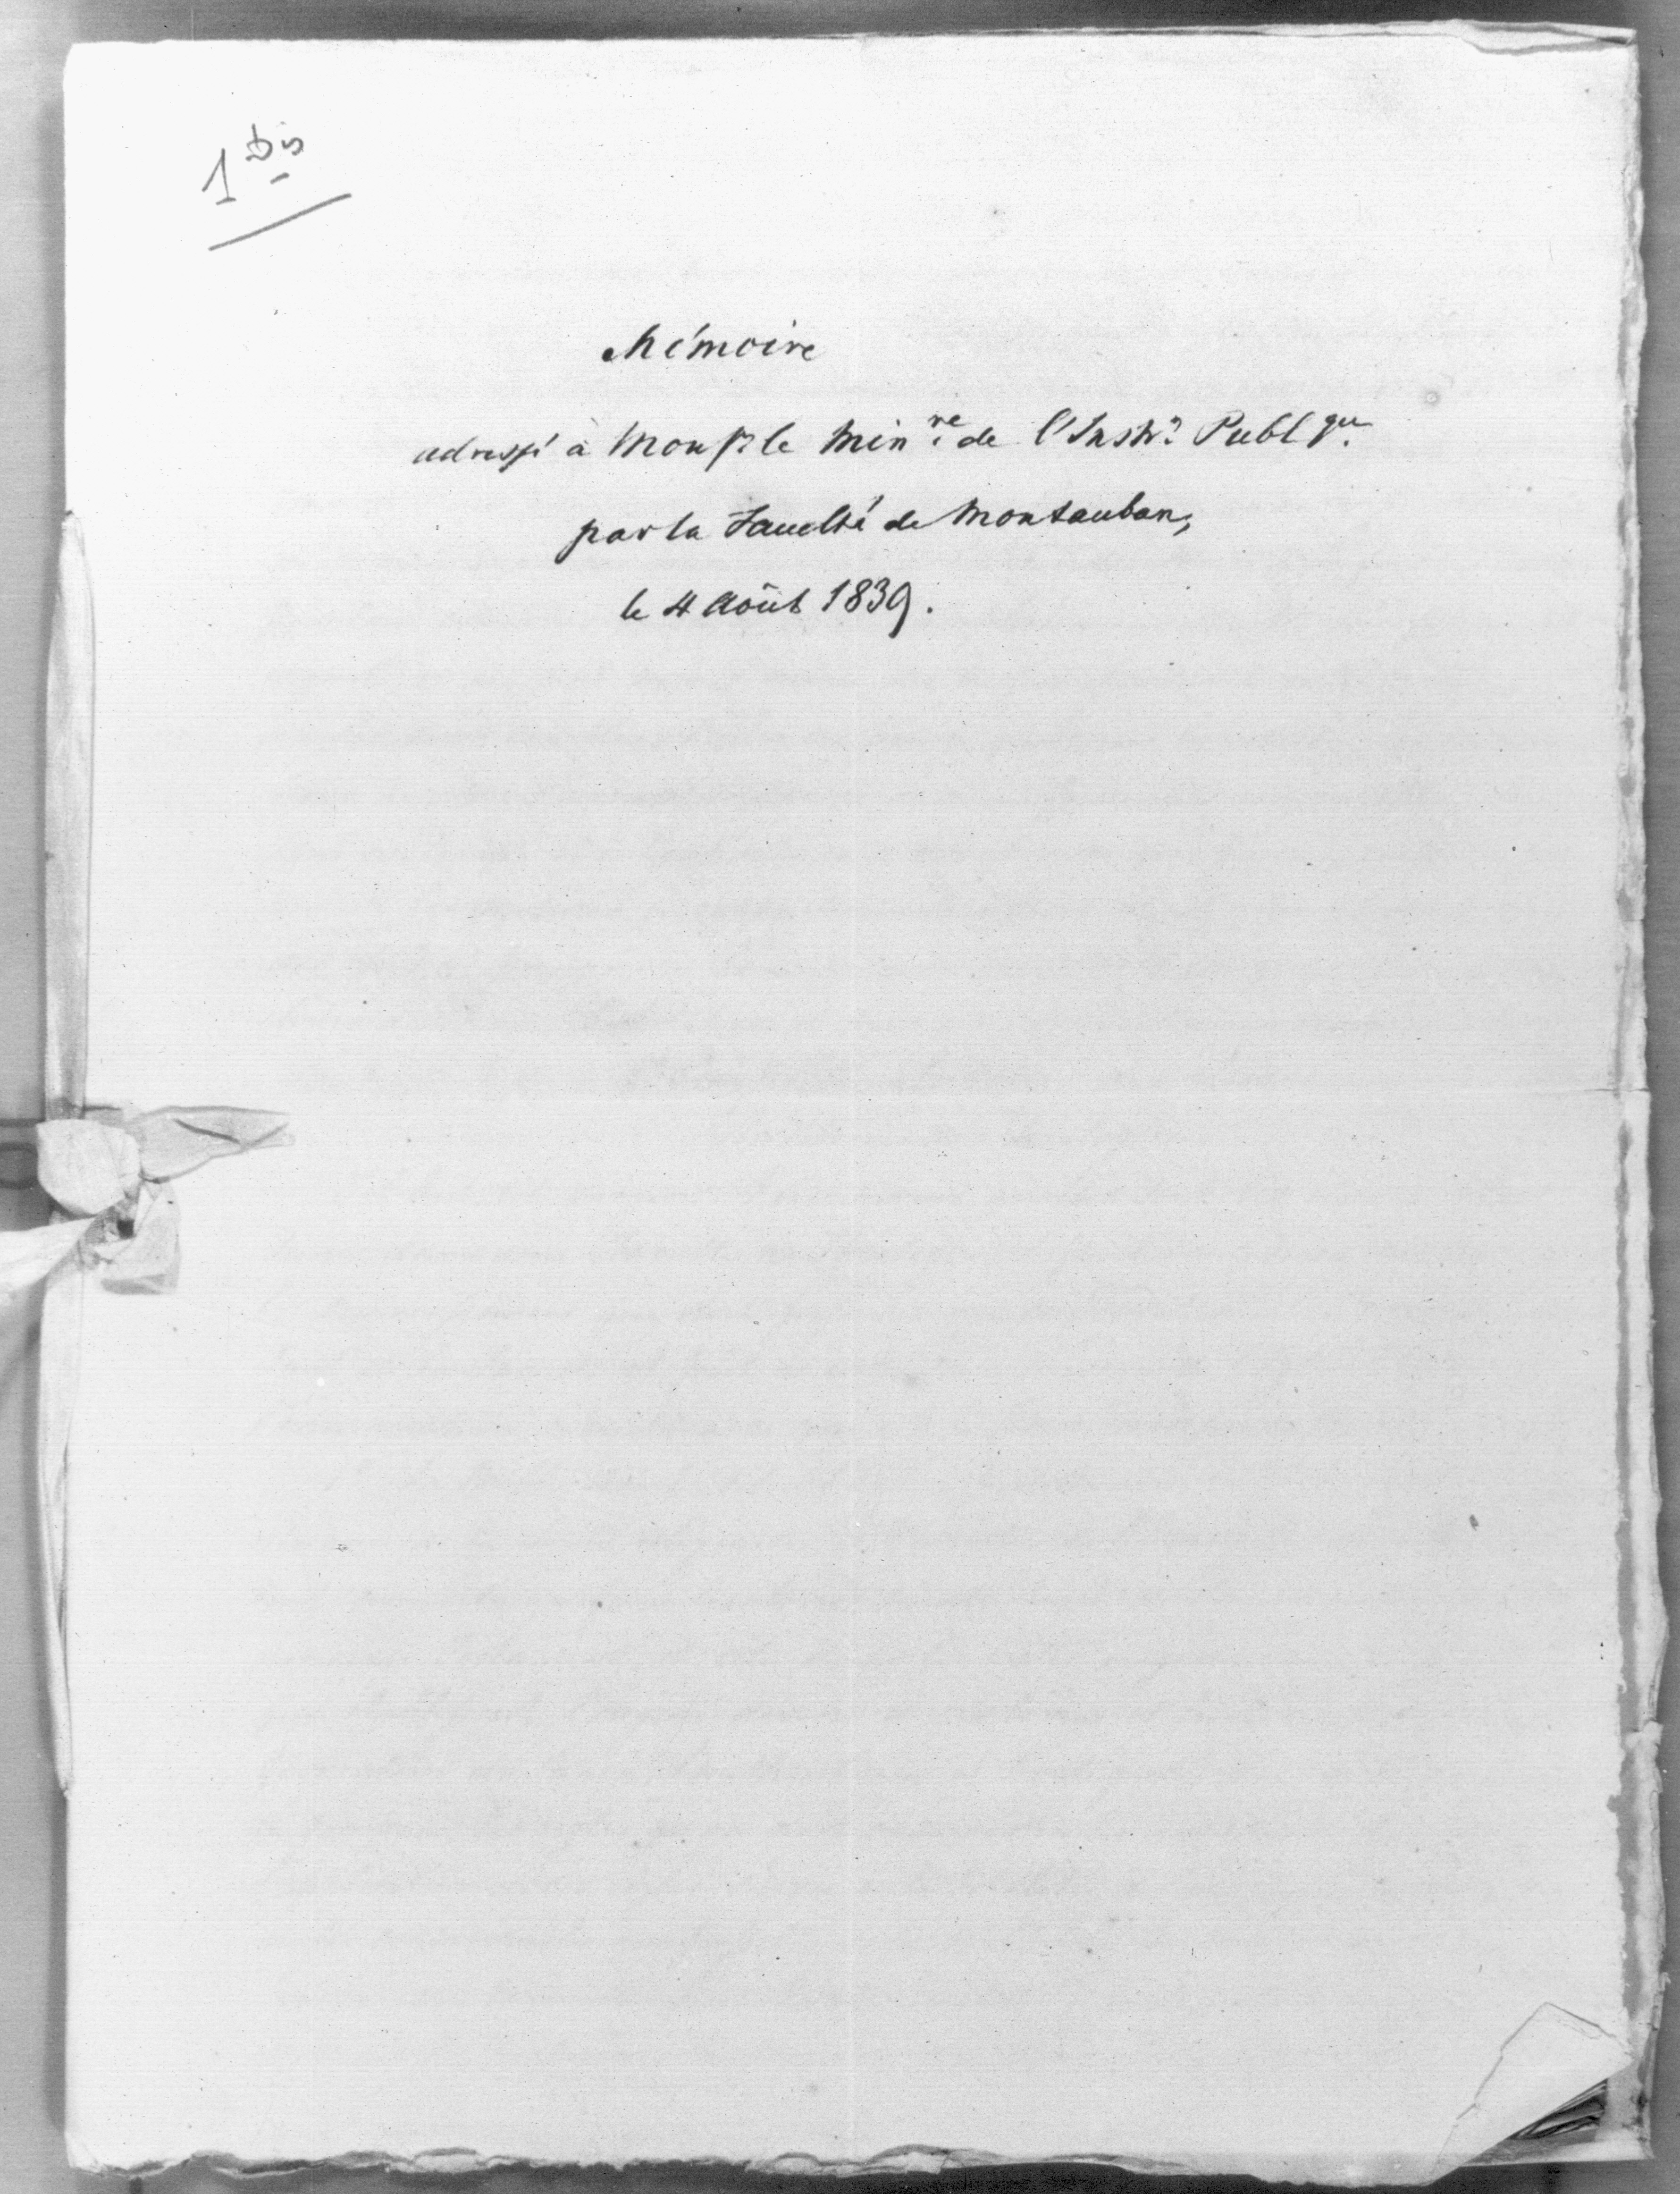 1 bis
Mémoire
adressé à Monsr. le Minre. de l'Instrn. Publque.
par la Faculté de Montauban,
le 4 Août 1839.